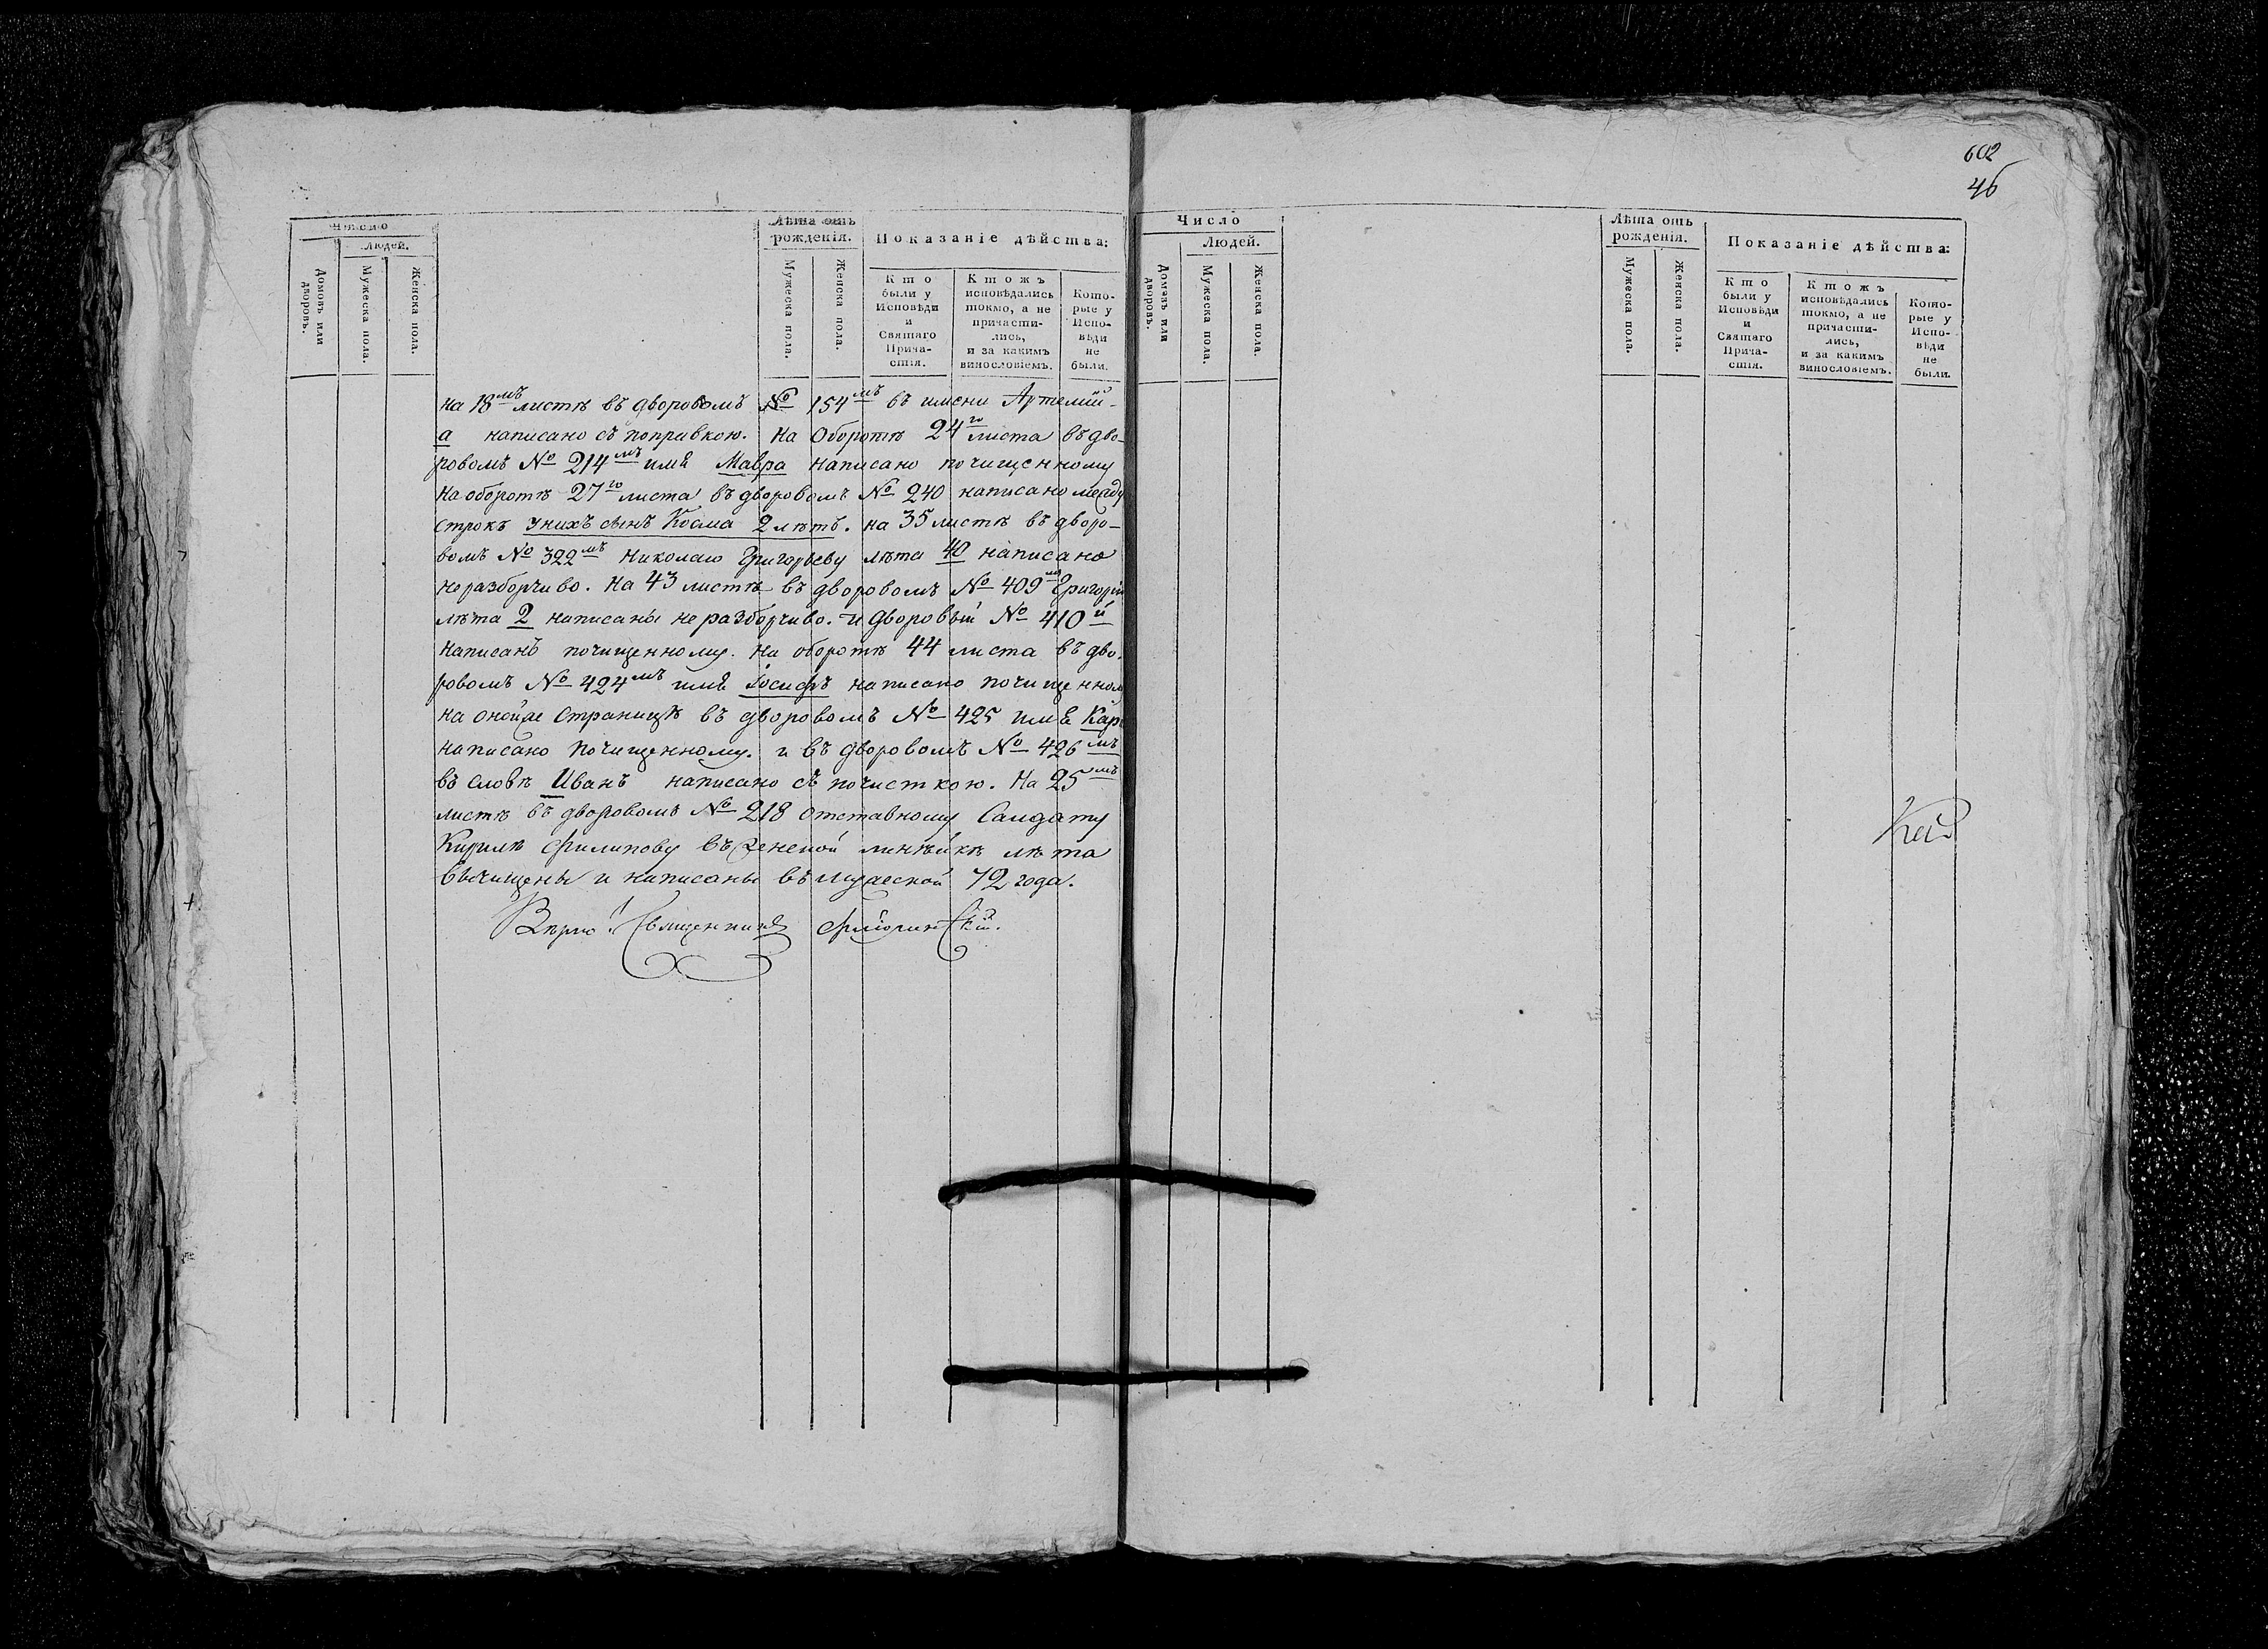 Число
Людей.
Домовъ или дворовъ.
Мужеска пола.
Женска пола.
Лѣта отъ рожденія.
Мужеска пола.
Женска пола.
Показаніе дѣйства:
Кто были у Исповѣди и Святаго Прича-стія.
Ктожъ исповѣдались токмо, а не причасти-лись, и за какимъ винословіемъ.
Кото-рые у Испо-вѣди не были.
на 18мъ листѣ въ дворовомъ № 154мъ въ имени Артемій-
а написано съ поправкою. На оборотѣ 24го листа въ дво-
ровомъ № 214мъ имя Мавра написано почищенному
На оборотѣ 27го листа въ дворовомъ № 240 написано между
строкъ у нихъ сынъ Косма 2 лѣтъ. на 35 листѣ въ дворо-
вомъ № 322мъ Николаю Григорьеву лѣта 40 написано
неразборчиво. На 43 листѣ въ дворовомъ № 409м Григорію
лѣта 2 написаны неразборчиво. и дворовый № 410й
написанъ почищенному. На оборотѣ 44 листа въ дво-
ровомъ № 424мъ имя Іосифъ написано почищенному
на онойже страницѣ въ дворовомъ № 425 имя Кар
написано почищенному. и въ дворовомъ № 426мъ
въ словѣ Иванъ написано съ почисткою. На 25мъ
листѣ въ дворовомъ № 218 отставному Салдату
Кирилѣ Филипову въ женской линѣйкѣ лѣта
вычищены и написаны въ мужеской 72 года.
Вѣрно: Священникъ
602
46
Число
Людей.
Домовъ или дворовъ.
Мужеска пола.
Женска пола.
Лѣта отъ рожденія.
Мужеска пола.
Женска пола.
Показаніе дѣйства:
Кто были у Исповѣди и Святаго Прича-стія.
Ктожъ исповѣдались токмо, а не причасти-лись, и за какимъ винословіемъ.
Кото-рые у Испо-вѣди не были.